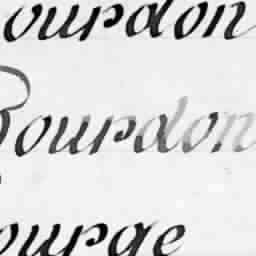 ourdon
Bourdon
ourge